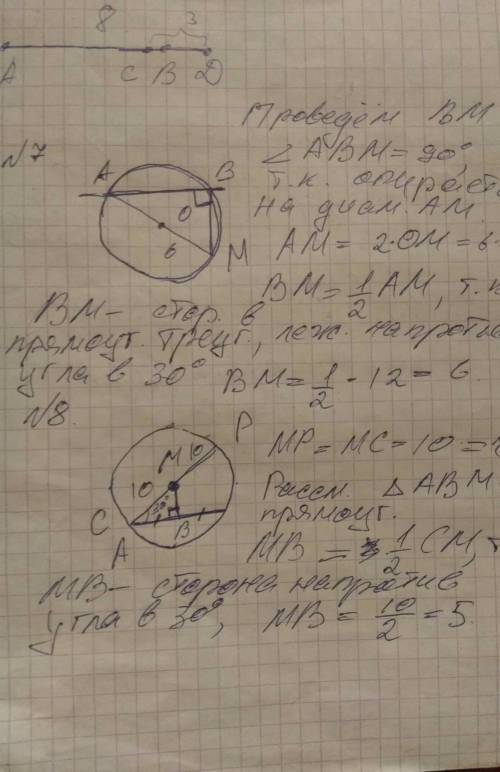 8 3
A C B D
Проведём BM
N7
∠ABM = 90°,
A B
т.к. опирает
на диам. AM
O
6
M
AM = 2·OM = 6·
BM = 1/2 AM, т.к
BM – стор. в
прямоуг. треуг., леж. напротив
угла в 30° BM = 1/2 · 12 = 6
N8.
P
M 10
MP = MC = 10 =
10
Рассм. △ABM
30°
C
прямоуг.
A B
MB = 1/2 CM, т
MB – сторона напротив
угла в 30°, MB = 10/2 = 5